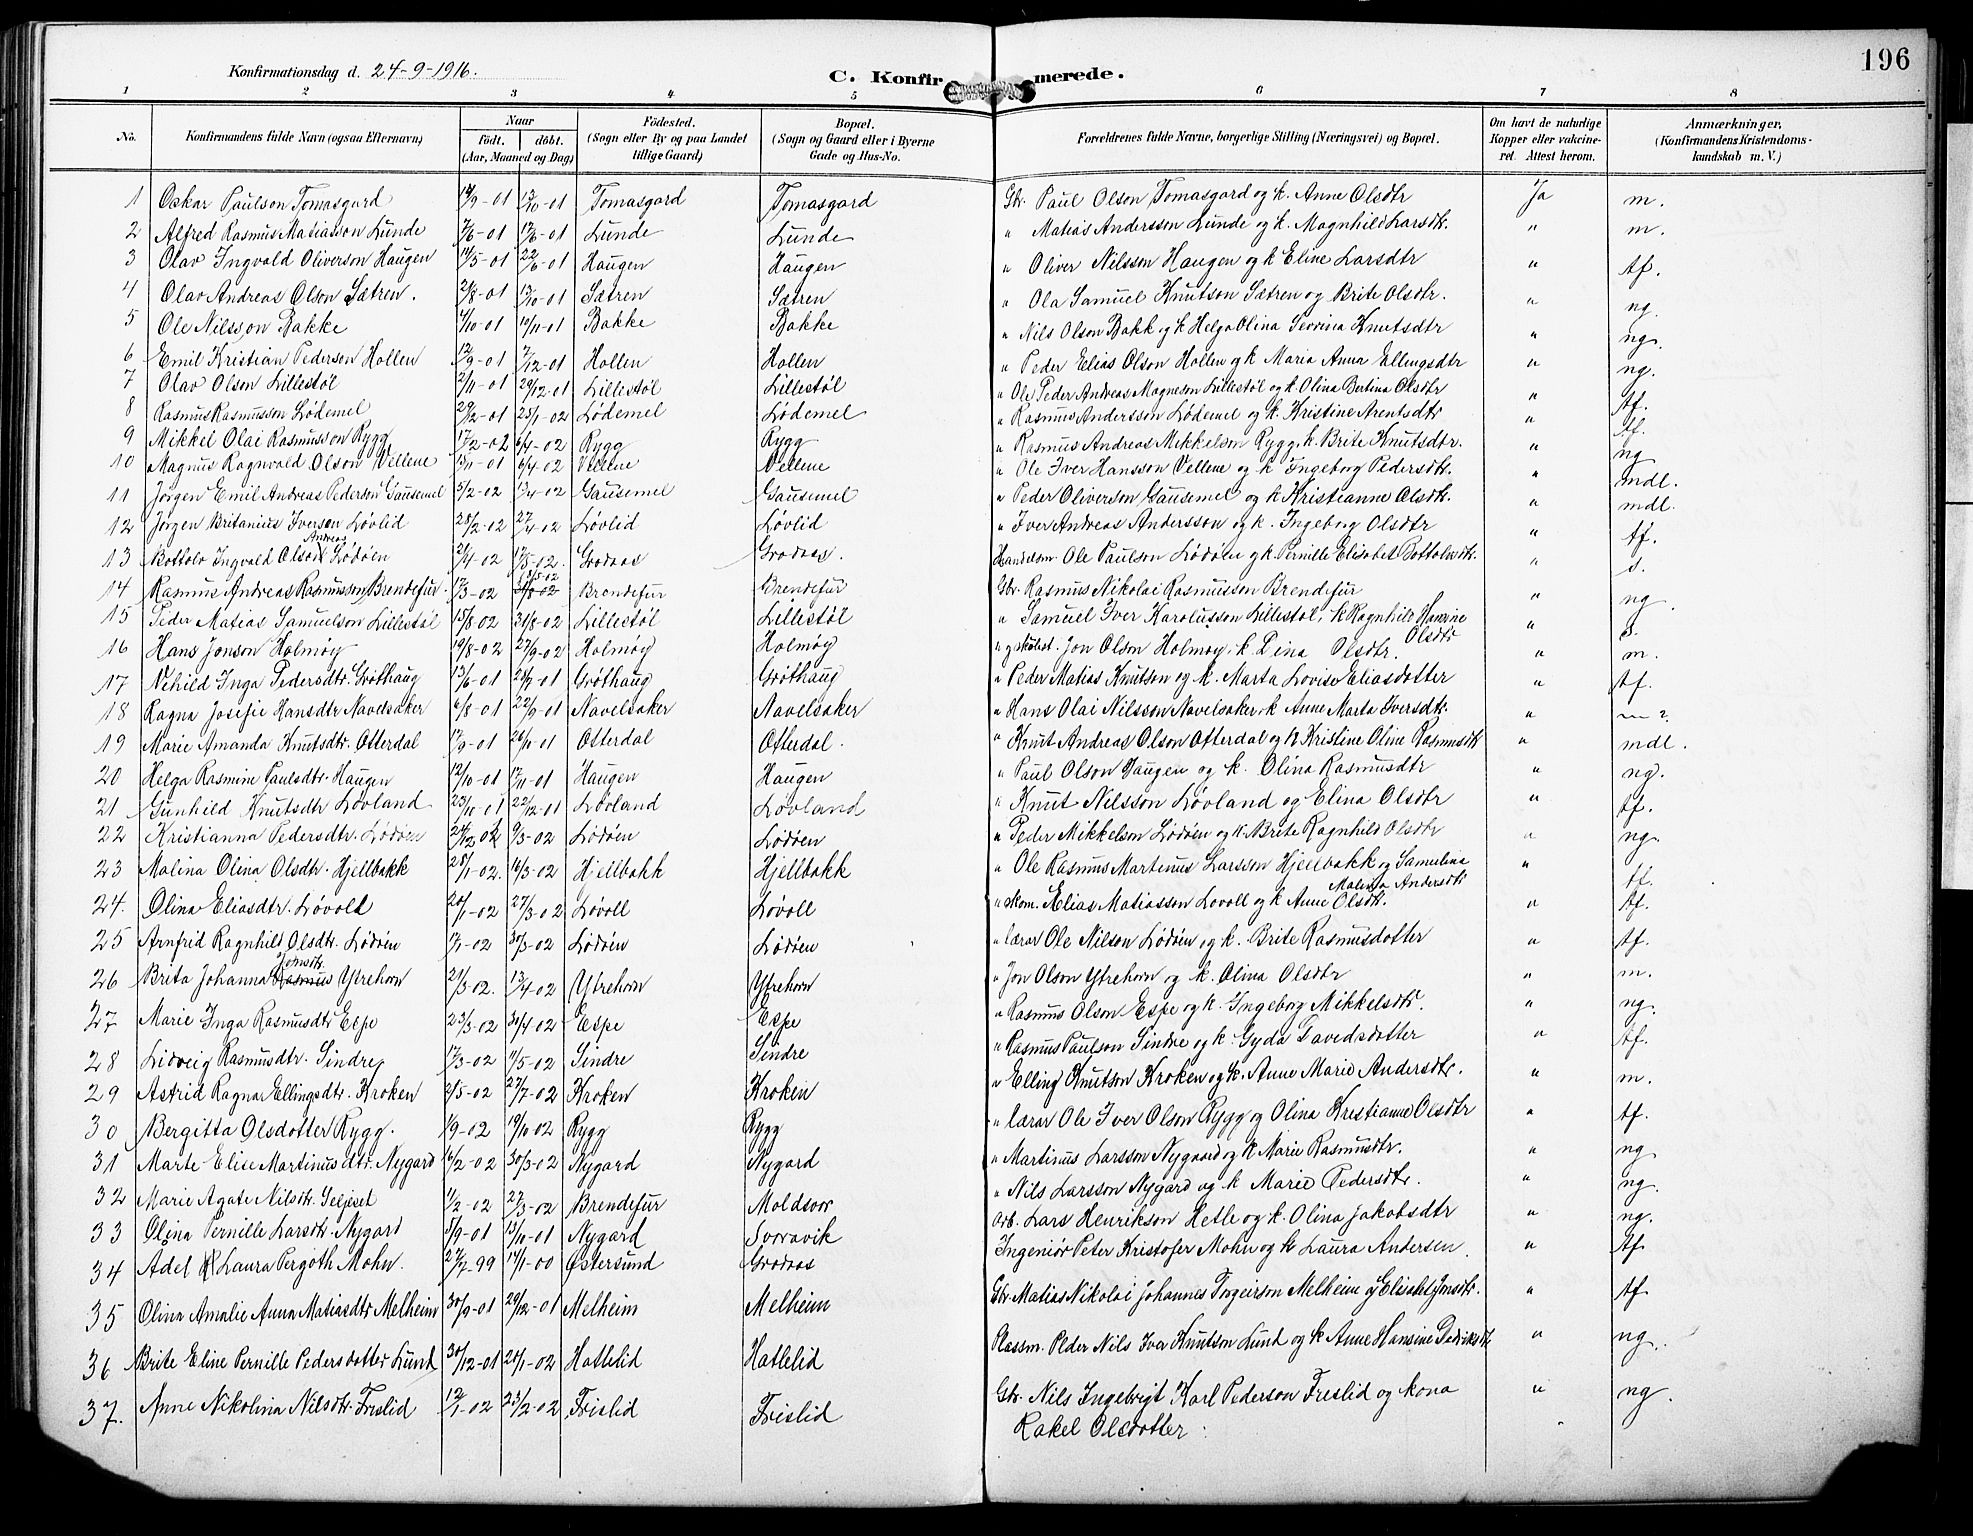 196
Konfirmationsdag d. 24-9-1916.
C. Konfirmerede.
1 2 3 4 5 6 7 8
No. Konfirmandens fulde Navn (ogsaa Efternavn) Naar Födt. döbt. (Aar, Maaned og Dag) Födested. (Sogn eller By og paa Landet tillige Gaard) Bopæl. (Sogn og Gaard eller i Byerne Gade og Hus-No. Forældrenes fulde Navne, borgerlige Stilling (Næringsvei) og Bopæl. Om havt de naturlige Kopper eller vakcineret. Attest herom. Anmærkninger. (Konfirmandens Kristendomskundskab m. V.)
1 Oskar Paulson Tomasgard 14/9-01 13/10-01 Tomasgard Tomasgard Gbr. Paul Olson Tomasgard og k. Anne Olsdtr Ja m.
2 Alfred Rasmus Matiasson Lunde 7/6-01 Lunde Lunde " Matias Andersson Lunde og k. Magnhild Larsdtr. " m.
3 Olav Ingvald Oliverson Haugen 14/5-01 22/6-01 Haugen Haugen " Oliver Nilsson Haugen og k Eline Larsdtr " tf.
4 Olav Andreas Olson Sætren. 2/8-01 13/10-01 Sætren Sætren " Ola Samuel Knutson Sætren og Brite Olsdtr. " ng.
5 Ole Nilsson Bakke 4/10-01 10/11-01 Bakke Bakke " Nils Olson Bakk og k Helga Olina Severina Knutsdtr " ng.
6 Emil Kristian Pederson Hollen 12/9-01 7/12-01 Hollen Hollen " Peder Elias Olson Hollen og k Maria Anna Ellingsdtr " ng.
7 Olav Olson Lillestøl 2/11-01 29/12-01 Lillestøl Lillestøl " Ole Peder Andreas Magneson Lillestøl og k Olina Bertina Olsdtr " tf.
8 Rasmus Rasmusson Lødemel 29/12-01 25/1-02 Lødemel Lødemel " Rasmus Andersson Lødemel og k. Kristine Arentsdtr " tf.
9 Mikkel Olai Rasmusson Rygg 17/2-02 6/4-02 Rygg Rygg " Rasmus Andreas Mikkelson Rygg, k. Brite Knutsdtr. " ng
10 Magnus Ragnvald Olson Vellene 13/11-01 6/4-02 Vellene Vellene " Ole Iver Hansson Vellene og k Ingeborg Pedersdtr. " mdl.
11 Jørgen Emil Andreas Pederson Gausemel 5/2-02 13/4-02 Gausemel Gausemel " Peder Oliverson Gausemel og k Kristianne Olsdtr. " mdl.
12 Jørgen Britanius Iverson Løvlid 28/2-02 27/4-02 Løvlid Løvlid " Iver Andreas Andersson og k. Ingeborg Olsdtr " tf.
Andreas
13 Bottolv Ingvald Olson Lødøen 2/4-02 17/5-02. Grodaas Grodaas. Handelsm. Ole Paulson Lødøen og k. Pernille Elisabet Bottolvsdtr. " s.
14 Rasmus Andreas Rasmusson Brendefur. 17/3-02 18/5-02 Brendefur Brendefur Gbr. Rasmus Nikolai Rasmusson Brendefur " ng.
15 Peder Matias Samuelson Lillestøl 15/8-02 31/8-02 Lillestøl Lillestøl " Samuel Iver Karolusson Lillestøl, k Ragnhild Hanrine Olsdtr " s.
16 Hans Jonson Holmøy 19/8-02 27/9-02 Holmøy Holmøy " og skobst. Jon Olson Holmøy, k. Lina Olsdtr. " m.
17 Nehild Inga Pedersdtr. Grøthaug 13/6-01 Grøthaug Grøthaug " Peder Matias Knutson og k. Marta Lovise Eliasdotter " tf.
18 Ragna Josefie Hansdtr Navelsaker 6/8-01 22/9-01 Navelsaker Navelsaker " Hans Olai Nilsson Navelsaker, k Anne Marta Iversdtr. " m?
19 Marie Amanda Knutsdtr. Otterdal 17/9-01 Otterdal Otterdal. " Knut Andreas Olson Otterdal og k Kristine Oline Rasmusdtr " mdl.
20 Helga Rasmine Paulsdtr. Haugen 12/10-01 17/11-01 Haugen Haugen " Paul Olson Haugen og k. Olina Rasmusdtr " ng.
21 Gunhild Knutsdtr Løvland 23/10-01 22/12-01 Løvland Løvland " Knut Nilsson Løvland og Elina Olsdtr " tf.
22 Kristianna Pedersdtr. Lødøen 9/3-02 Lødøen Lødøen " Peder Mikkelson Lødøen og k. Brite Ragnhild Olsdtr " ng.
23 Malina Olina Olsdtr. Hjellbakk 28/1-02. 16/3-02 Hjellbakk Hjellbakk " Ole Rasmus Martinus Larsson Hjellbakk og Samulina Malena Andersdtr " tf.
24. Olina Eliasdtr. Løvoll 20/1-02 27/3-02 Løvoll Løvoll " skom. Elias Matiasson Løvoll og k Anne Olsdtr. " tf.
25 Arnfrid Ragnhild Olsdtr. Lødøen 17/1-02 30/3-02 Lødøen Lødøen " lærar Ole Nilson Lødøen og k. Brite Rasmusdotter " tf.
Jonsdtr.
26 Brita Johanna Rasmus Ytrehorn 21/3-02. 13/4-02 Ytrehorn Ytrehorn " Jon Olson Ytrehorn og k. Olina Olsdtr " m.
27 Marie Inga Rasmusdtr Espe 23/3-02 30/4-02 Espe Espe " Rasmus Olson Espe og k. Ingeborg Mikkelsdtr. " ng.
28 Lidveig Rasmusdtr. Sindre 17/3-02 11/5-02 Sindre Sindre " Rasmus Paulson Sindre og k. Gyda Davidsdotter " tf.
29 Astrid Ragna Ellingsdtr. Kroken 2/5-02 27/7-02 Kroken Kroken " Elling Knutson Kroken og k. Anne Marie Andersdtr. " m.
30 Bergitta Olsdotter Rygg. 1/9-02 19/10 02 Rygg Rygg " lærar Ole Iver Olson Rygg og Olina Kristianne Olsdtr " tf.
31 Marte Elise Martinusdtr. Nygard 16/2-02 30/3-02 Nygard Nygard " Martinus Larsson Nygaard og k Marie Rasmusdtr. " ng
32 Marie Agate Nilsdtr. Seljeset 1/2-02 27/3-02 Brendefur Moldsvor " Nils Larsson Nygard og k Marie Pedersdtr. " ng.
33 Olina Pernille Larsdtr. Nygard 5/9-01 13/10-01 Nygard Sorravik Arb. Lars Henrikson Hetle og k. Olina Jakobsdtr " ng.
34 Adel Laura Pergoth Mohn. 27/7-99 14/1-00 Østersund Grodaas Ingeniør Peter Kristofer Mohn og k Laura Andersen. " tf
35 Olina Amalie Anna Matiasdtr Melheim 30/9-01 29/12-01 Melheim Melheim Gbr. Matias Nikolai Johannes Torgeirson Melheim og Elisabet Jonsdtr. " tf
36 Brite Eline Pernille Pedersdotter Lund 30/12-01 20/1-02 Hatlelid Hatlelid Plassm. Peder Nils Iver Knutson Lund og k Anne Hansine Didriksdtr " ng.
37. Anne Nikolina Nilsdtr. Frislid 12/1-02 23/2-02 Frislid Frislid Gbr. Nils Ingebrigt Karl Pederson Freslid og kona " ng.
Rakel Olsdotter